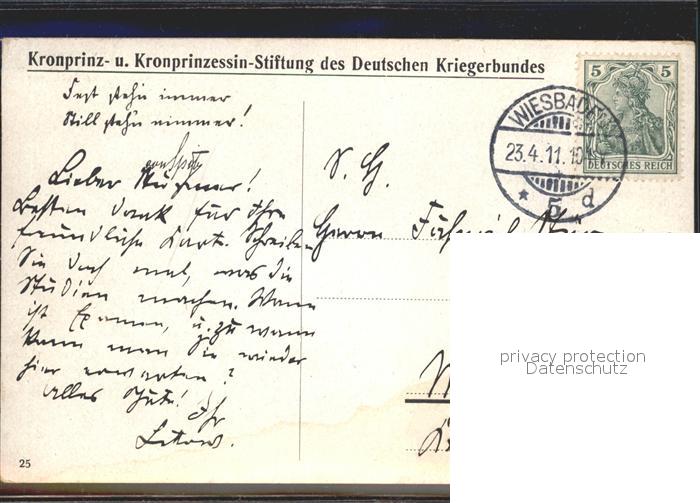 Kronprinz- u. Kronprinzessin-Stiftung des Deutschen Kriegerbundes
Fest stehn immer
Still stehn nimmer!
Lieber
Besten Dank für Ihre
freundliche Karte. Schreiben
Sie doch mal, was die
Studien machen. Wann
ist Examen, u. zu wann
kann man Sie wieder
hier erwarten?
Alles Gute!
Ihr
25
S. H.
Herrn
WIESBADEN
23.4.11.10
* 5 d
5 5
DEUTSCHES REICH
privacy protection
Datenschutz